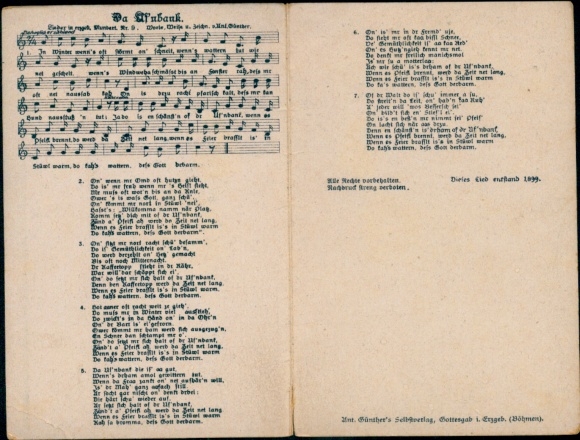 Da Uf'nbank.
Lieder in erzgeb. Mundart. Nr. 9. Worte, Weise u. Zeichn. v. Ant. Günther.
1. In Winter wenn's oft stermt on' schneit, wenn's wattern tut wie
net gescheit, wenn's Windwaha schmaßst bis an Fenster ra,
deß mr kaa
Hund nausjach'n tut; Jedo is en schänst'n of dr Uf'nbank, wenn es
Pfeifl brennt, do werd da Zeit net lang, wenn es Feier brasslt is's in
Stüwl warm, do kah's wattern, deß's Gott derbarm.
2. On' wenn mr Omd oft hutzn gieht,
Do is' mr freh wenn mr 's Helf! sieht,
On' kömmt mr nort in Stüwl 'nei',
Haßt's: „Willkomma namm nár Platz,
Komm setz' dich mit of dr Uf'nbank,
Zünd a' Pfeifl ah werd da Zeit net lang,
Wenn es Feier brasslt is's in Stüwl warm
Do kah's wattern, deß's Gott derbarm".
3. On' sitzt mr nort racht schü' besamm',
Do is' Gemüthlichkeit
Do werd derzehlt on' Hetz' gemacht
Bis oft noch Mitternacht.
Dr Kaffeetopp stieht in dr Röhr,
War will dar schöppt sich ei'
On' do setzt mr sich halt of de Uf'nbank,
Denn ben Kaffeetopp werd da Zeit net lang,
Wenn es Feier brasslt is's in Stüwl warm
Do kah's wattern, deß's Gott derbarm.
4. Hat aner oft racht weit ze gieh',
Do muß mr in Winter viel ausstieh,
Do zwickt's in da Händ on' in da Ohr'n
On' dr Bart is' ei'gefrorn.
On' do setzt mr sich halt of de Uf'nbank,
Zünd't a' Pfeifl ah werd da Zeit net lang,
Wenn es Feier brasslt is's in Stüwl warm
Do kah's wattern, deß's Gott derbarm.
5. Da Uf'nbank die is' aa gut,
Wenn's drham amol gewittern tut.
Wenn da Fraa zankt on' net aufhär'n will,
Is' dr Mah' ganz afach still.
Ar sogt gar nischt on' denkt drbei:
Die härt schu' wieder auf.
Ar setzt sich halt of de Uf'nbank,
Zünd't a' Pfeifl ah werd da Zeit net lang
Wenn es Feier brasslt is's in Stüwl warm
Noh sa brumma, deß's Gott derbarm.
6. On' is' mr in dr Fremd' uft,
Do sieht mr oft kaa bissl Schnee,
Dr' Gemüthlichkeit is' aa kaa Red'
On' es Hutz'ngieh kenne sa net.
Do denkt mr freilich manichsmol
Is mr su a metterlaa:
Ach wie schü' is's drham of dr Uf'nbank,
Wenn es Pfeifl brennt, werd da Zeit net lang
Wenn es Feier brasslt is's in Stüwl warm
Do ka's wattern, deß's Gott derbarm.
7. Of dr Walt do is' schu' immer a su,
Do streit'n da Leit, on' hab'n kaa Ruh'
A' jeder will 'wos Besser'sch sei'
On' bild't sich en' Stief'l ei'.
Do is's en best'n mr nimmt sei' Pfeif'
On lacht sich nár aw drza
Denn en schänst'n is' drham of dr Uf'nbank,
Wenn es Pfeifl brennt, werd da Zeit net lang,
Wenn es Feier brasslt is's in Stüwl warm
Do kah's wattern, deß's Gott derbarm.
Alle Rechte vorbehalten.
Nachdruck streng verboten.
Dieses Lied entstand 1899.
Ant. Günther's Selbstverlag, Gottesgab i. Erzgeb. (Böhmen).